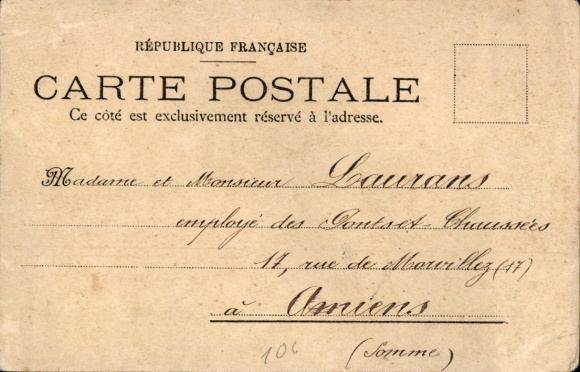 RÉPUBLIQUE FRANÇAISE
CARTE POSTALE
Ce côté est exclusivement réservé à l'adresse.
Madame et Monsieur Laurans
employé des Ponts et Chaussées
17, rue de Morvillez (17)
à Amiens
(Somme)
10c